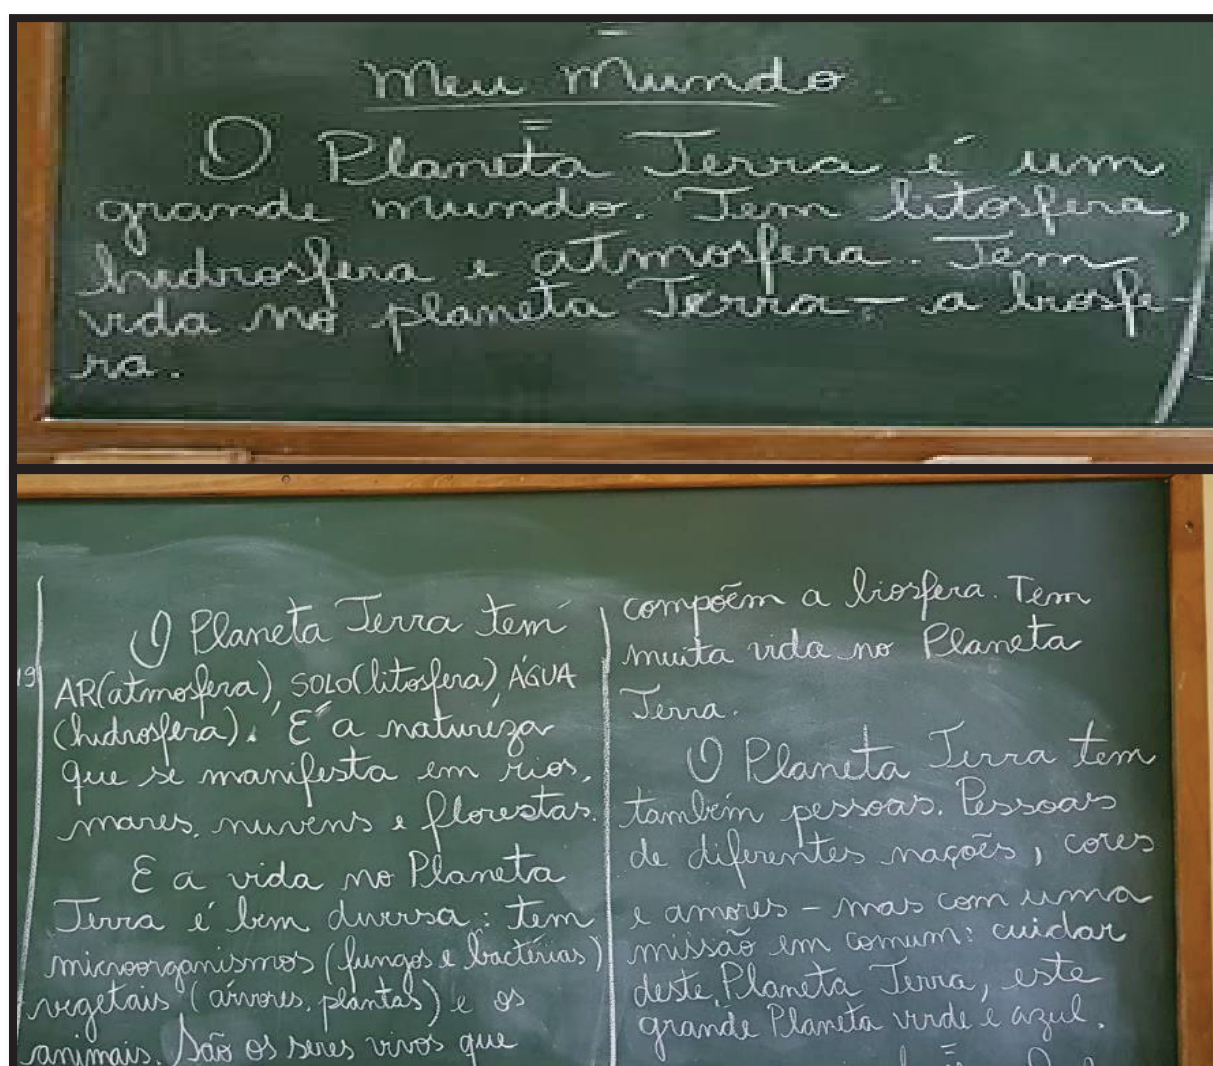 Meu Mundo
O Planeta Terra é um
grande mundo. Tem litosfera,
hidrosfera e atmosfera. Tem
vida no planeta Terra - a biosfe-
ra.
O Planeta Terra tem
AR(atmosfera), SOLO(litosfera), ÁGUA
(hidrosfera). É a natureza
que se manifesta em rios,
mares, nuvens e florestas.
E a vida no Planeta
Terra é bem diversa: tem
microorganismos (fungos e bactérias)
vegetais (árvores, plantas) e os
animais. São os seres vivos que
compõem a biosfera. Tem
muita vida no Planeta
Terra.
O Planeta Terra tem
também pessoas. Pessoas
de diferentes nações, cores
e amores - mas com uma
missão em comum: cuidar
deste Planeta Terra, este
grande Planeta verde e azul.